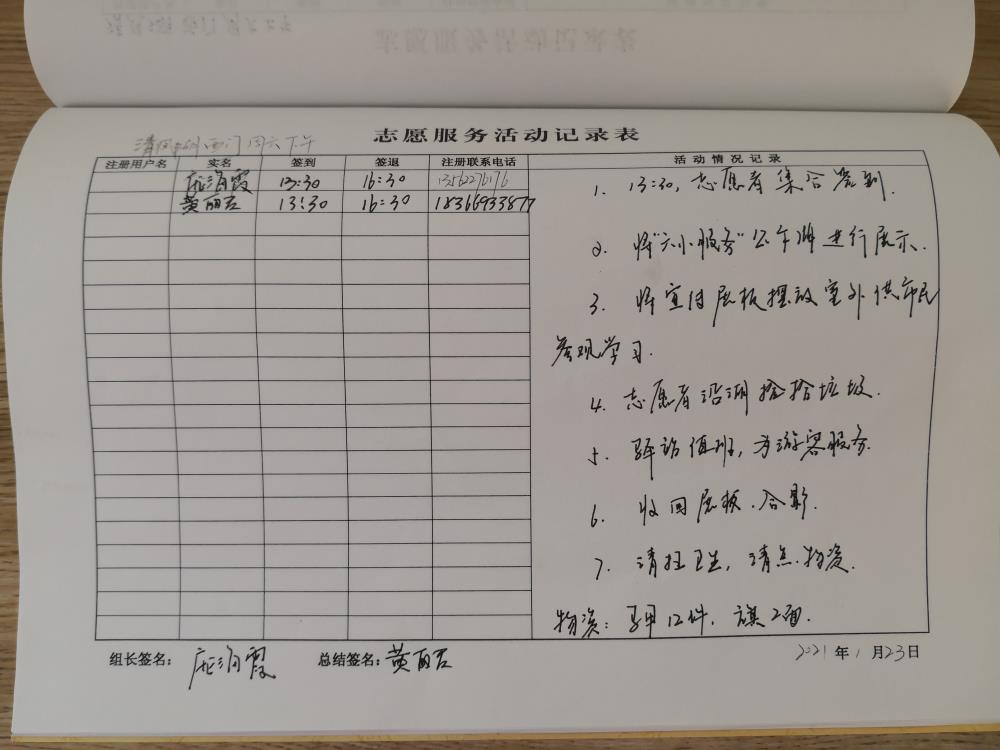 志愿服务活动记录表
西门周六下午
注册用户名 实名 签到 签退 注册联系电话 活动情况记录
庞海霞 13:30 16:30 13562276176
黄丽君 13:30 16:30 18366933877
1. 13:30, 志愿者集合签到.
2. 将"六小服务"公午牌进行展示.
3. 将宣传展板摆放室外供市民
参观学习.
4. 志愿者沿湖捡拾垃圾.
5. 驿站值班, 为游客服务.
6. 收回展板. 合影.
7. 清扫卫生, 清点物资.
物资: 马甲12件, 旗2面.
组长签名: 庞海霞 总结签名: 黄丽君
2021年1月23日